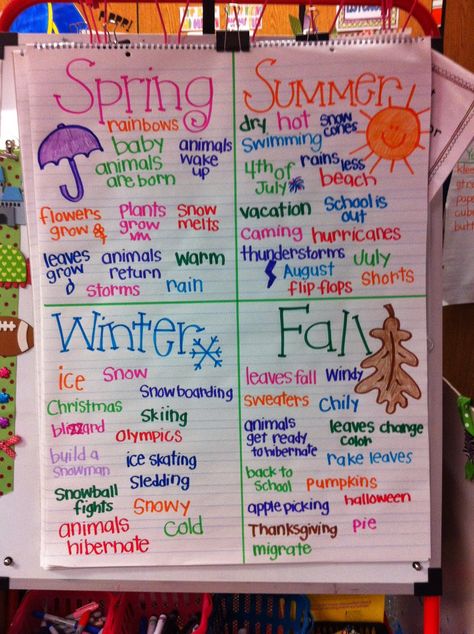 Spring
rainbows
baby
animals
are born
animals
wake
up
flowers
grow
plants
grow
snow
melts
leaves
grow
animals
return
warm
storms
rain
Summer
dry
hot
snow
cones
swimming
4th of
July
rains
less
beach
vacation
School is
out
caming
hurricanes
thunderstorms
July
August
Shorts
flip flops
Winter
ice
Snow
Snowboarding
Christmas
Skiing
blizzard
Olympics
build a
snowman
ice skating
Sledding
Snowball
fights
Snowy
animals
hibernate
cold
Fall
leaves fall
Windy
sweaters
Chily
animals
get ready
to hibernate
leaves change
color
rake leaves
back to
School
pumpkins
apple picking
halloween
Thanksgiving
pie
migrate